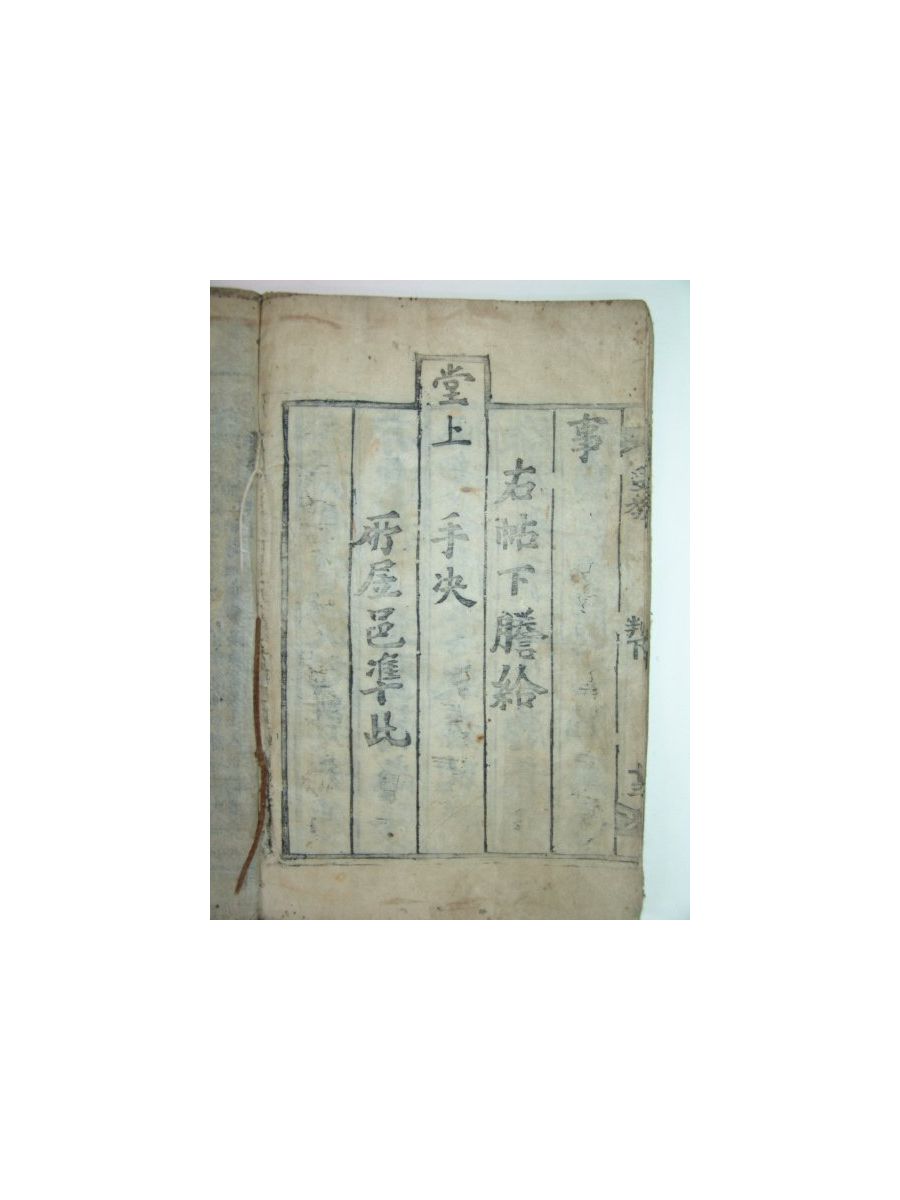 事
右帖下謄給
堂上 手决
所居邑準此